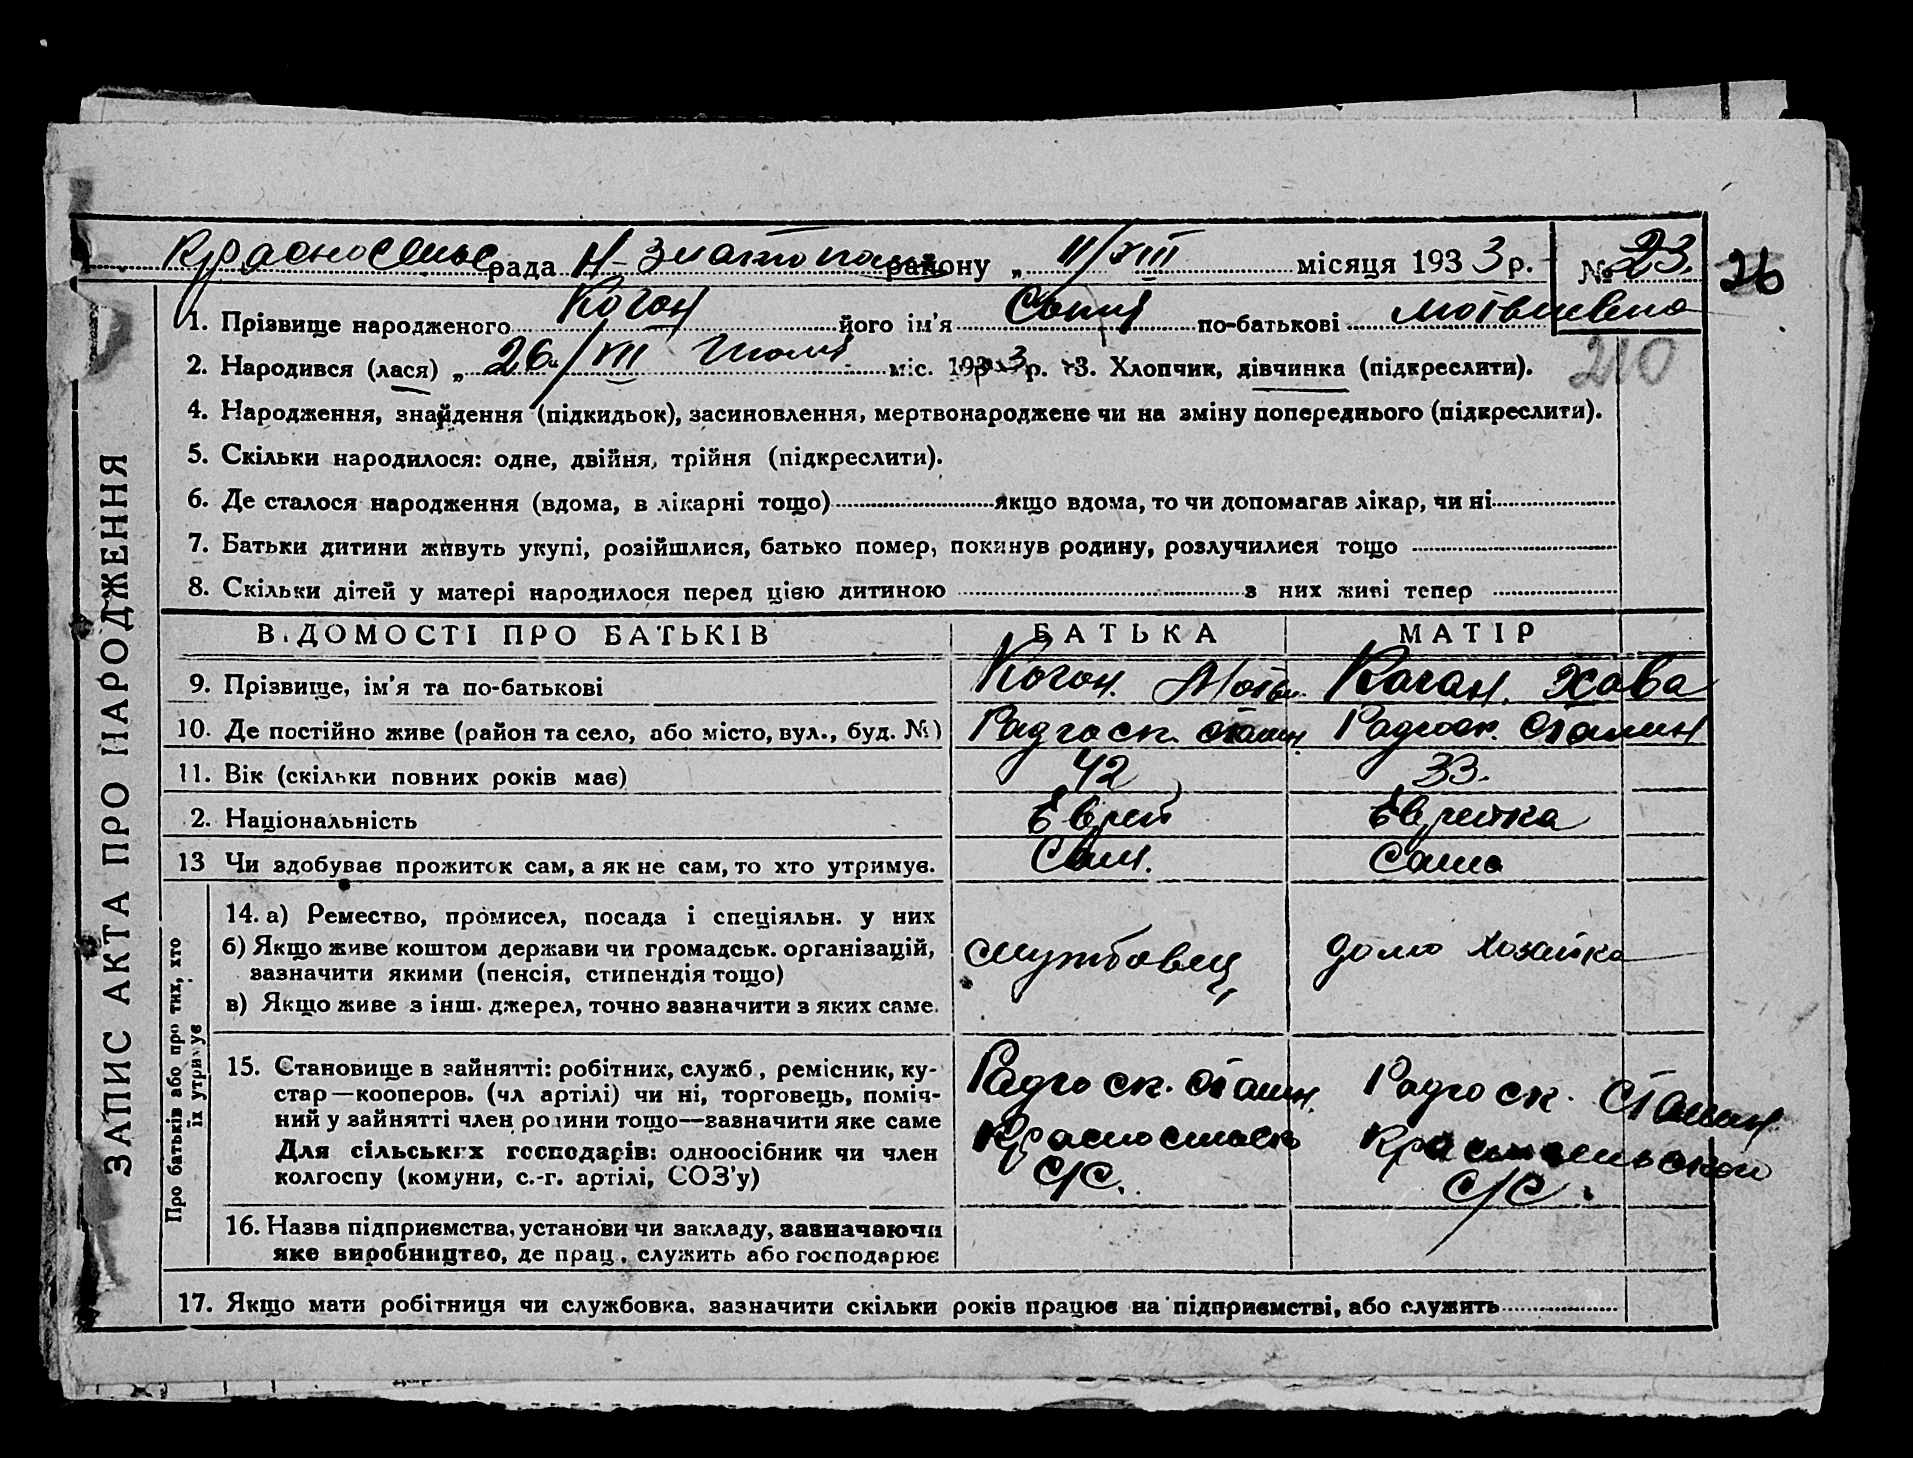 Красносельс рада Н-Златопол району „ 11/VIII місяця 1933 р. № 23. 26
1. Прізвище народженого Коган його ім'я Соня по-батькові Мотвиевна
2. Народився (лася) „ 26 " / VII Июля міс. 1933 р. 3. Хлопчик, дівчинка (підкреслити). 210
4. Народження, знайдення (підкидьок), засиновлення, мертвонароджене чи на зміну попереднього (підкреслити).
5. Скільки народилося: одне, двійня, трійня (підкреслити).
6. Де сталося народження (вдома, в лікарні тощо) якщо вдома, то чи допомагав лікар, чи ні
7. Батьки дитини живуть укупі, розійшлися, батько помер, покинув родину, розлучилися тощо
8. Скільки дітей у матері народилося перед цією дитиною з них живі тепер
ЗАПИС АКТА ПРО НАРОДЖЕННЯ
ВІДОМОСТІ ПРО БАТЬКІВ БАТЬКА МАТІР
9. Прізвище, ім'я та по-батькові Коган. Мотви. Коган. Хава
10. Де постійно живе (район та село, або місто, вул., буд. №) Радгоск. Сталин. Радгоск. Сталин
11. Вік (скільки повних років має) 42 33.
2. Національність Еврей Еврейка
13 Чи здобуває прожиток сам, а як не сам, то хто утримує. Сам. Сама
Про батьків або про тих, хто їх утримує
14. а) Ремество, промисел, посада і спеціяльн. у них
б) Якщо живе коштом держави чи громадськ. організацій,
зазначити якими (пенсія, стипендія тощо) службовец домо хозяйка
в) Якщо живе з інш. джерел, точно зазначити з яких саме.
15. Становище в зайнятті: робітник, служб., ремісник, ку-
стар—кооперов. (чл артілі) чи ні, торговець, поміч- Радгоск. Сталин. Радгоск. Сталин
ний у зайнятті член родини тощо—зазначити яке саме
Для сільських господарів: одноосібник чи член Красносельск Красносельской
колгоспу (комуни, с.-г. артілі, СОЗ'у) С/С. С/С.
16. Назва підприємства, установи чи закладу, зазначаючи
яке виробництво, де прац., служить або господарює
17. Якщо мати робітниця чи службовка, зазначити скільки років працює на підприємстві, або служить